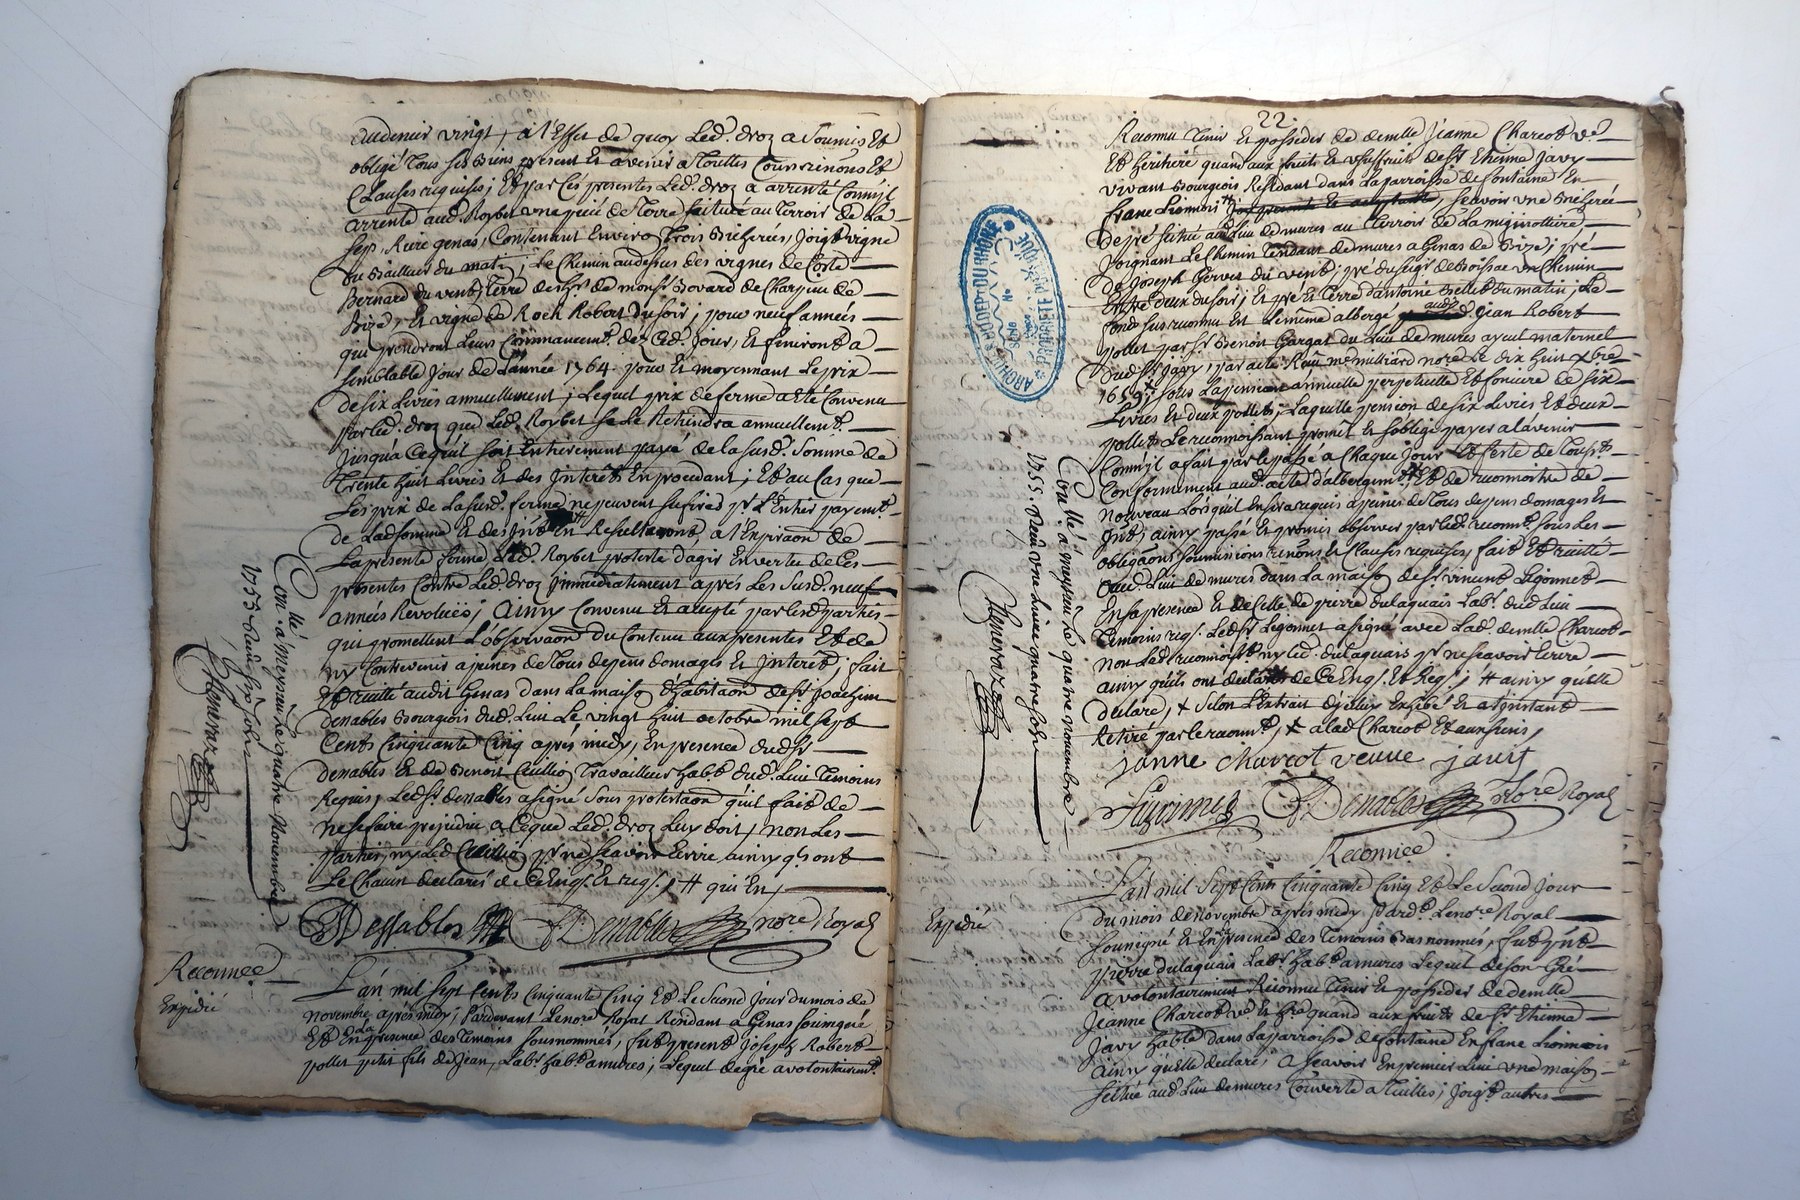 audenier vingt, a l'effet de quoy led. droz a soumis et
obligé tous ses biens present et avenir a touttes Cours
Clauses requises; et par ces presentes led. droz a arrenté comme il
arrente aud. Roybet une piece de terre scituée au terroir de
Genas, Contenant Environ trois bicherées, joig.t vigne
du matin; Le Chemin audessus des vignes de Coste
Bernard du vent; terre des h.rs de mons.r Bovard de
Bize, et vigne de Roch Robert du soir; pour neuf années
qui prendront leurs Commancem.t dez Ced. jour, et finiront a
semblable jour de L'année 1764. pour et moyennant Le prix
de six Livres annuellement; Lequel prix de ferme a eté Convenu
par led. droz que led. Roybet se Le Retiendra annuellem.t
jusqu'a Cequ'il soit Entierement payé de la susd. somme de
trente huit Livres et des interets En procedant; Et au Cas que
Les prix de La susd. ferme ne peuvent sufire p.r L'Entier payem.t
de Lad. somme et des En Resultants, a L'Expiraon de
La presente ferme Led. Roybet proteste d'agir En vertu de Ces
presentes Contre Led. droz immediatement aprés Les susd. neuf
années Revolues; Ainsy Convenu et accepté par lesd. parties
qui promettent L'observaon du Contenu aux presentes Et de
ny Contrevenir a peines de tous depens domages et interets; fait
et recitté audit Genas dans La maison d'habitaon de s.r joachim
Denables Bourgeois dud. Lieu Le vingt huit octobre mil sept
Cents Cinquante Cinq aprés midy, En presence dud. s.r
Denables et de Benoit travailleur hab.t dud. Lieu temoins
Requis, Led. s.r Denables a signé sous protestaon qu'il fait de
ne se faire prejudice a Ceque Led. droz Luy doit, non Les
parties, ny Led. p.r ne sçavoir Ecrire, ainsy q.ls ont
Le Chacun declarés de Ce Enq.s Et req.s, # qui En,
Denables no.re Royal
Con.llé a Meyzieu Le quatre Novembre
1755. Reçu
Reconnce
Expedié
L'an mil sept Cents Cinquante Cinq Et Le second jour du mois de
novembre aprés midy, pardevant Le no.re Royal Residant a Genas soussigné
Et En La presence des temoins sousnommés, fut present joseph Robert
pollet petit fils de jean, Lab.r hab.t a mures, Lequel de gré a volontairem.t
22.
Reconnu tenir Et posseder de demlle jeanne Charcot v.e
Et heritiere quand aux fruits et usuffruits de s.r Etienne javy
vivant Bourgeois Residant dans La parroisse de fontaine En
franc Lionnois, sçavoir une Bicherée
de pré scitué aud. Lieu de mures au terroir de La
joignant Le Chemin tendant de mures a Genas de Bize; pré
de joseph Gervet du vent; pré du seig.r de Boissac un Chemin
Entre deux du soir; et pré et terre d'antoine Bellet du matin; Le
fond sus reconnu Est Le meme albergé aud. jean Robert
pollet par s.r Benoit Gargat du Lieu de mures ayeul maternel
dud. s.r javy, par acte Reçu m.e milliard no.re Le dix huit xbre
1659, sous La pension annuelle perpetuelle Et fonciere de six
Livres et deux pollets; Laquelle pension de six Livres Et deux
pollets Le reconnoissant promet et s'oblige payer a L'avenir
Comm'il a fait par le passé a Chaque jour et feste de touss.ts
Conformement aud. acte d'albergem.t Et de reconnoitre de
nouveau Lorsqu'il En sera requis a peine de tous depens domages et
int.ts, ainsy passé et promis observer par led. reconn.t sous Les
obligaons soumissions renons et Clauses requises, fait Et recitté
aud. Lieu de mures dans La maison de s.r vincent Ligonnet
En sa presence et de Celle de pierre dulaquais Lab.r dud. Lieu
temoins req.s. Led. s.r Ligonnet a signé avec Lad. demlle Charcot
non Led. reconnoiss.t ny Led. dulaquais p.r ne sçavoir Ecrire
ainsy qu'ils ont declaré de Ce Enq.s Et Req.s; # ainsy qu'elle
declare, x selon L'Extrait d'jceluy Exibé Et a L'instant
Retiré par le reconn.t, x a lad. Charcot Et aux siens,
janne charcot veuve javit
Denables no.re Royal
Con.llé a meyzieu Le quatre novembre
1755. Reçu une Livre quatre sols
Reconnce
Expedié
L'an mil sept Cents Cinquante Cinq Et Le second jour
du mois de novembre aprés midy, pard.t Le no.re Royal
soussigné et En presence des temoins Bas nommés, fut p.nt
pierre dulaquais Lab.r hab.t a mures Lequel de son Gré
a volontairement Reconnu tenir Et posseder de demlle
jeanne Charcot v.e et h.re quand aux fruits de s.r Etienne
javy hab.te dans La parroisse de fontaine En franc Lionnois
ainsy qu'elle declare, a sçavoir En premier Lieu une maison
scitué aud. Lieu de mures Couverte a tuilles, joig.t autres